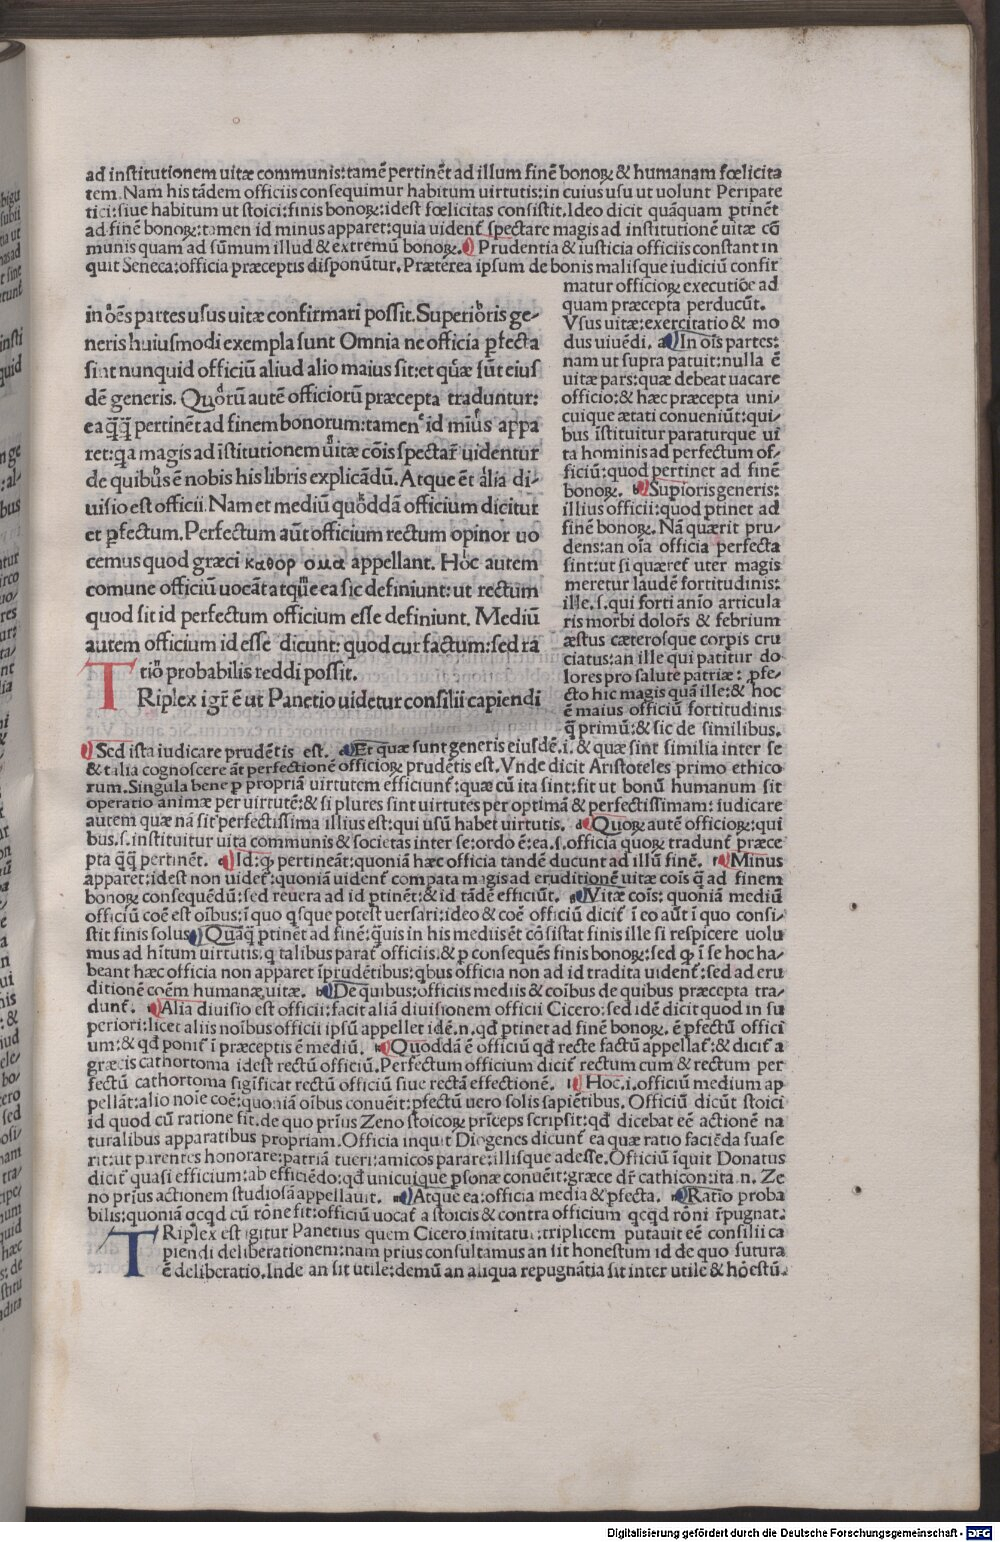 ad institutionem uitæ communis: tamē pertinēt ad illum finē bonoꝝ & humanam fœlicita
tem. Nam his tādem officiis consequimur habitum uirtutis: in cuius usu ut uolunt Peripate
tici: siue habitum ut stoici: finis bonoꝝ: idest fœlicitas consistit. Ideo dicit quāquam ꝑtinēt
ad finē bonoꝝ: tamen id minus apparet: quia uidenť spectare magis ad institutionē uitæ cō
munis quam ad sūmum illud & extremū bonoꝝ. Prudentia & iusticia officiis constant in
quit Seneca: officia præceptis disponūtur. Præterea ipsum de bonis malisque iudiciū confir
matur officioꝝ executiōe ad
quam præcepta perducūt.
Vsus uitæ: exercitatio & mo
dus uiuēdi. a In oīs partes:
nam ut supra patuit: nulla ē
uitæ pars: quæ debeat uacare
officio: & hæc præcepta uni/
cuique ætati conueniūt: qui/
bus īstituitur paraturque ui
ta hominis ad perfectum of/
ficiū: quod pertinet ad finē
bonoꝝ. b Supioris generis:
illius officii: quod ptinet ad
finē bonoꝝ. Nā quærit pru/
dens: an oīa officia perfecta
sint: ut si quæreť uter magis
meretur laudē fortitudinis:
ille. s. qui forti anīo articula
ris morbi dolorꝭ & febrium
æstus cæterosque corpis cru
ciatus: an ille qui patitur do/
lores pro salute patriæ: ꝑfe/
cto hic magis quā ille: & hoc
ē maius officiū fortitudinis
q̄ primū: & sic de similibus.
in oēs partes usus uitæ confirmari possit. Superioris ge/
neris huiusmodi exempla sunt Omnia ne officia ꝑfecta
sint nunquid officiū aliud alio maius sit: et quæ sūt eius
dē generis. Quorū autē officiorū præcepta traduntur:
ea q̄q̄ pertinēt ad finem bonorum: tamen id minus appa
ret: qa magis ad īstitutionem uitæ cōis spectarꝭ uidentur
de quibus ē nobis his libris explicādū. Atque ēt alia di/
uisio est officii. Nam et mediū quoddā officium dicitur
et ꝑfectum. Perfectum aūt officium rectum opinor uo
cemus quod græci καθορ ομα appellant. Hoc autem
comune officiū uocāt atque ea sic definiunt: ut rectum
quod sit id perfectum officium esse definiunt. Mediū
autem officium id esse dicunt: quod cur factum: sed ra
tio probabilis reddi possit.
TRiplex igī ē ut Panetio uidetur consilii capiendi
Sed ista iudicare prudētis est. d Et quæ sunt generis eiusdē. i. & quæ sint similia inter se
& talia cognoscere āt perfectionē officioꝝ prudētis est. Vnde dicit Aristoteles primo ethico
rum. Singula bene ꝑ propriā uirtutem efficiunť: quæ cū ita sint: fit ut bonū humanum sit
operatio animæ per uirtutē: & si plures sint uirtutes per optimā & perfectissimam: iudicare
autem quæ nā sit perfectissima illius est: qui usū habet uirtutis. d Quoꝝ autē officioꝝ: qui
bus. s. instituitur uita communis & societas inter se: ordo ē: ea. s. officia quoꝝ tradunť præce
pta q̄q̄ pertinēt. e Id: ꝙ pertineāt: quoniā hæc officia tandē ducunt ad illū finē. f Minus
apparet: idest non uideť: quoniā uidenť compata magis ad eruditionē uitæ coīs q̄ ad finem
bonoꝝ consequēdū: sed reuera ad id ptinēt: & id tādē efficiūt. g Vitæ coīs: quoniā mediū
officiū coē est oībus: ī quo qsque potest uersari: ideo & coē officiū diciť ī eo aūt ī quo consi/
stit finis solus. Quāq̄ ꝑtinēt ad finē: q̄uis in his mediis ēt cōsistat finis ille si respicere uolu
mus ad hītum uirtutis. q talibus parať officiis: & ꝑ consequēs finis bonoꝝ: sed ꝙ ī se hoc ha/
beant hæc officia non apparet īprudētibus: qbus officia non ad id tradita uidenť: sed ad eru
ditionē coēm humanæ uitæ. h De quibus: officiis mediis & coībus de quibus præcepta tra/
dunť. Alia diuisio est officii: facit aliā diuisionem officii Cicero: sed idē dicit quod in su
periori: licet aliis noībus officii ipsū appellet idē. n. qđ ptinet ad finē bonoꝝ. ē ꝑfectū offici
um: & qđ poniť ī præceptis ē mediū. k Quoddā ē officiū qđ recte factū appellať: & diciť a
græcis cathortoma idest rectū officiū. Perfectum officium diciť rectum cum & rectum per
fectū cathortoma significat rectū officiū siue rectā effectionē. l Hoc. i. officiū medium ap
pellāt: alio noīe coē: quoniā oībus conuēit: ꝑfectū uero solis sapiētibus. Officiū dicūt stoici
id quod cū ratione fit. de quo prius Zeno stoicoꝝ prīceps scripsit: qđ dicebat eē actionē na
turalibus apparatibus propriam. Officia inquit Diogenes dicunť ea quæ ratio faciēda suase
rit: ut parentes honorare: patriā tueri: amicos parare: illisque adesse. Officiū īquit Donatus
diciť quasi efficium: ab efficiēdo: qđ unicuique ꝑsonæ conuēit: græce dř cathicon: ita. n. Ze
no prius actionem studiosā appellauit. m Atque ea: officia media & ꝑfecta. n Ratio proba
bilis: quoniā qcqd cū rōne fit: officiū uocať a stoicis & contra officium qcqd rōni īpugnat:
TRiplex est igitur Panetius quem Cicero imitatur: triplicem putauit eē consilii ca
piendi deliberationem: nam prius consultamus an sit honestum id de quo futura
ē deliberatio. Inde an sit utile: demū an aliqua repugnātia sit inter utile & hōestū.
Digitalisierung gefördert durch die Deutsche Forschungsgemeinschaft - DFG